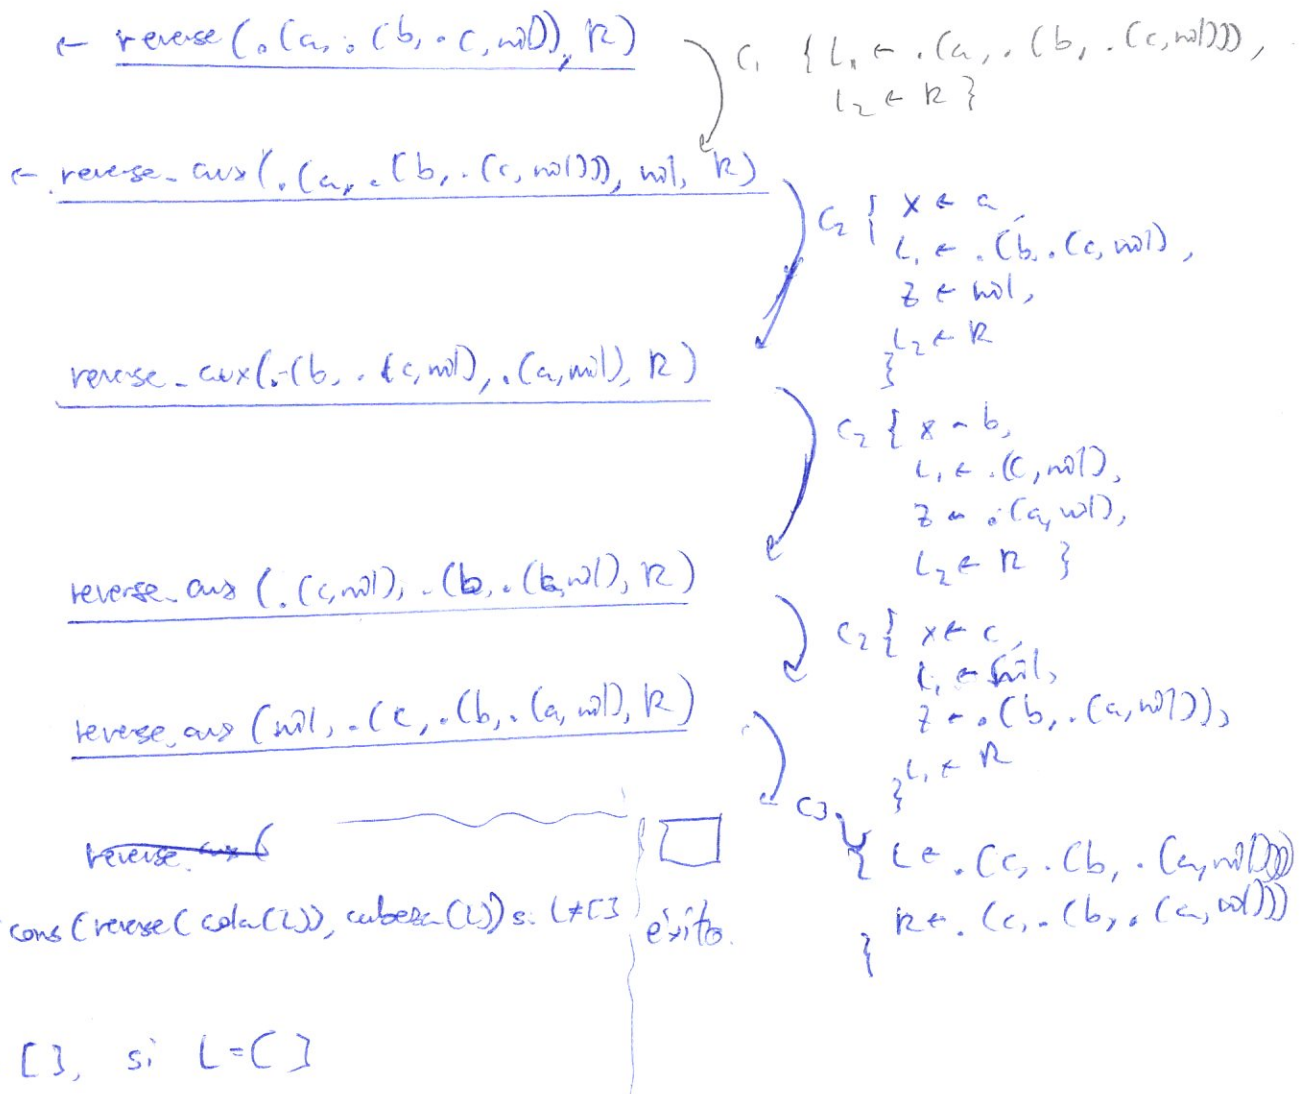 ← reverse(.(a, .(b, .c, nil)), R)
C1 { L1 ← .(a, .(b, .(c,nil))),
L2 ← R }
← reverse_aux(.(a, .(b, .(c, nil))), nil, R)
C2 { X ← a,
L1 ← .(b, .(c, nil),
Z ← nil,
L2 ← R
}
reverse_aux(.(b, .(c,nil), .(a,nil), R)
C2 { X ← b,
L1 ← .(c, nil),
Z ← .(a, nil),
L2 ← R }
reverse_aux (.(c,nil), .(b, .(b,nil), R)
C2 { X ← c,
L1 ← nil,
Z ← .(b, .(a, nil)),
L1 ← R
}
reverse_aux (nil, .(c, .(b, .(a, nil), R)
C3
{ L ← .(c, .(b, .(a,nil)))
R ← .(c, .(b, .(a, nil)))
}
reverse_aux (
cons(reverse(cola(L)), cabeza(L)) si L≠[]
éxito.
[], si L=[]